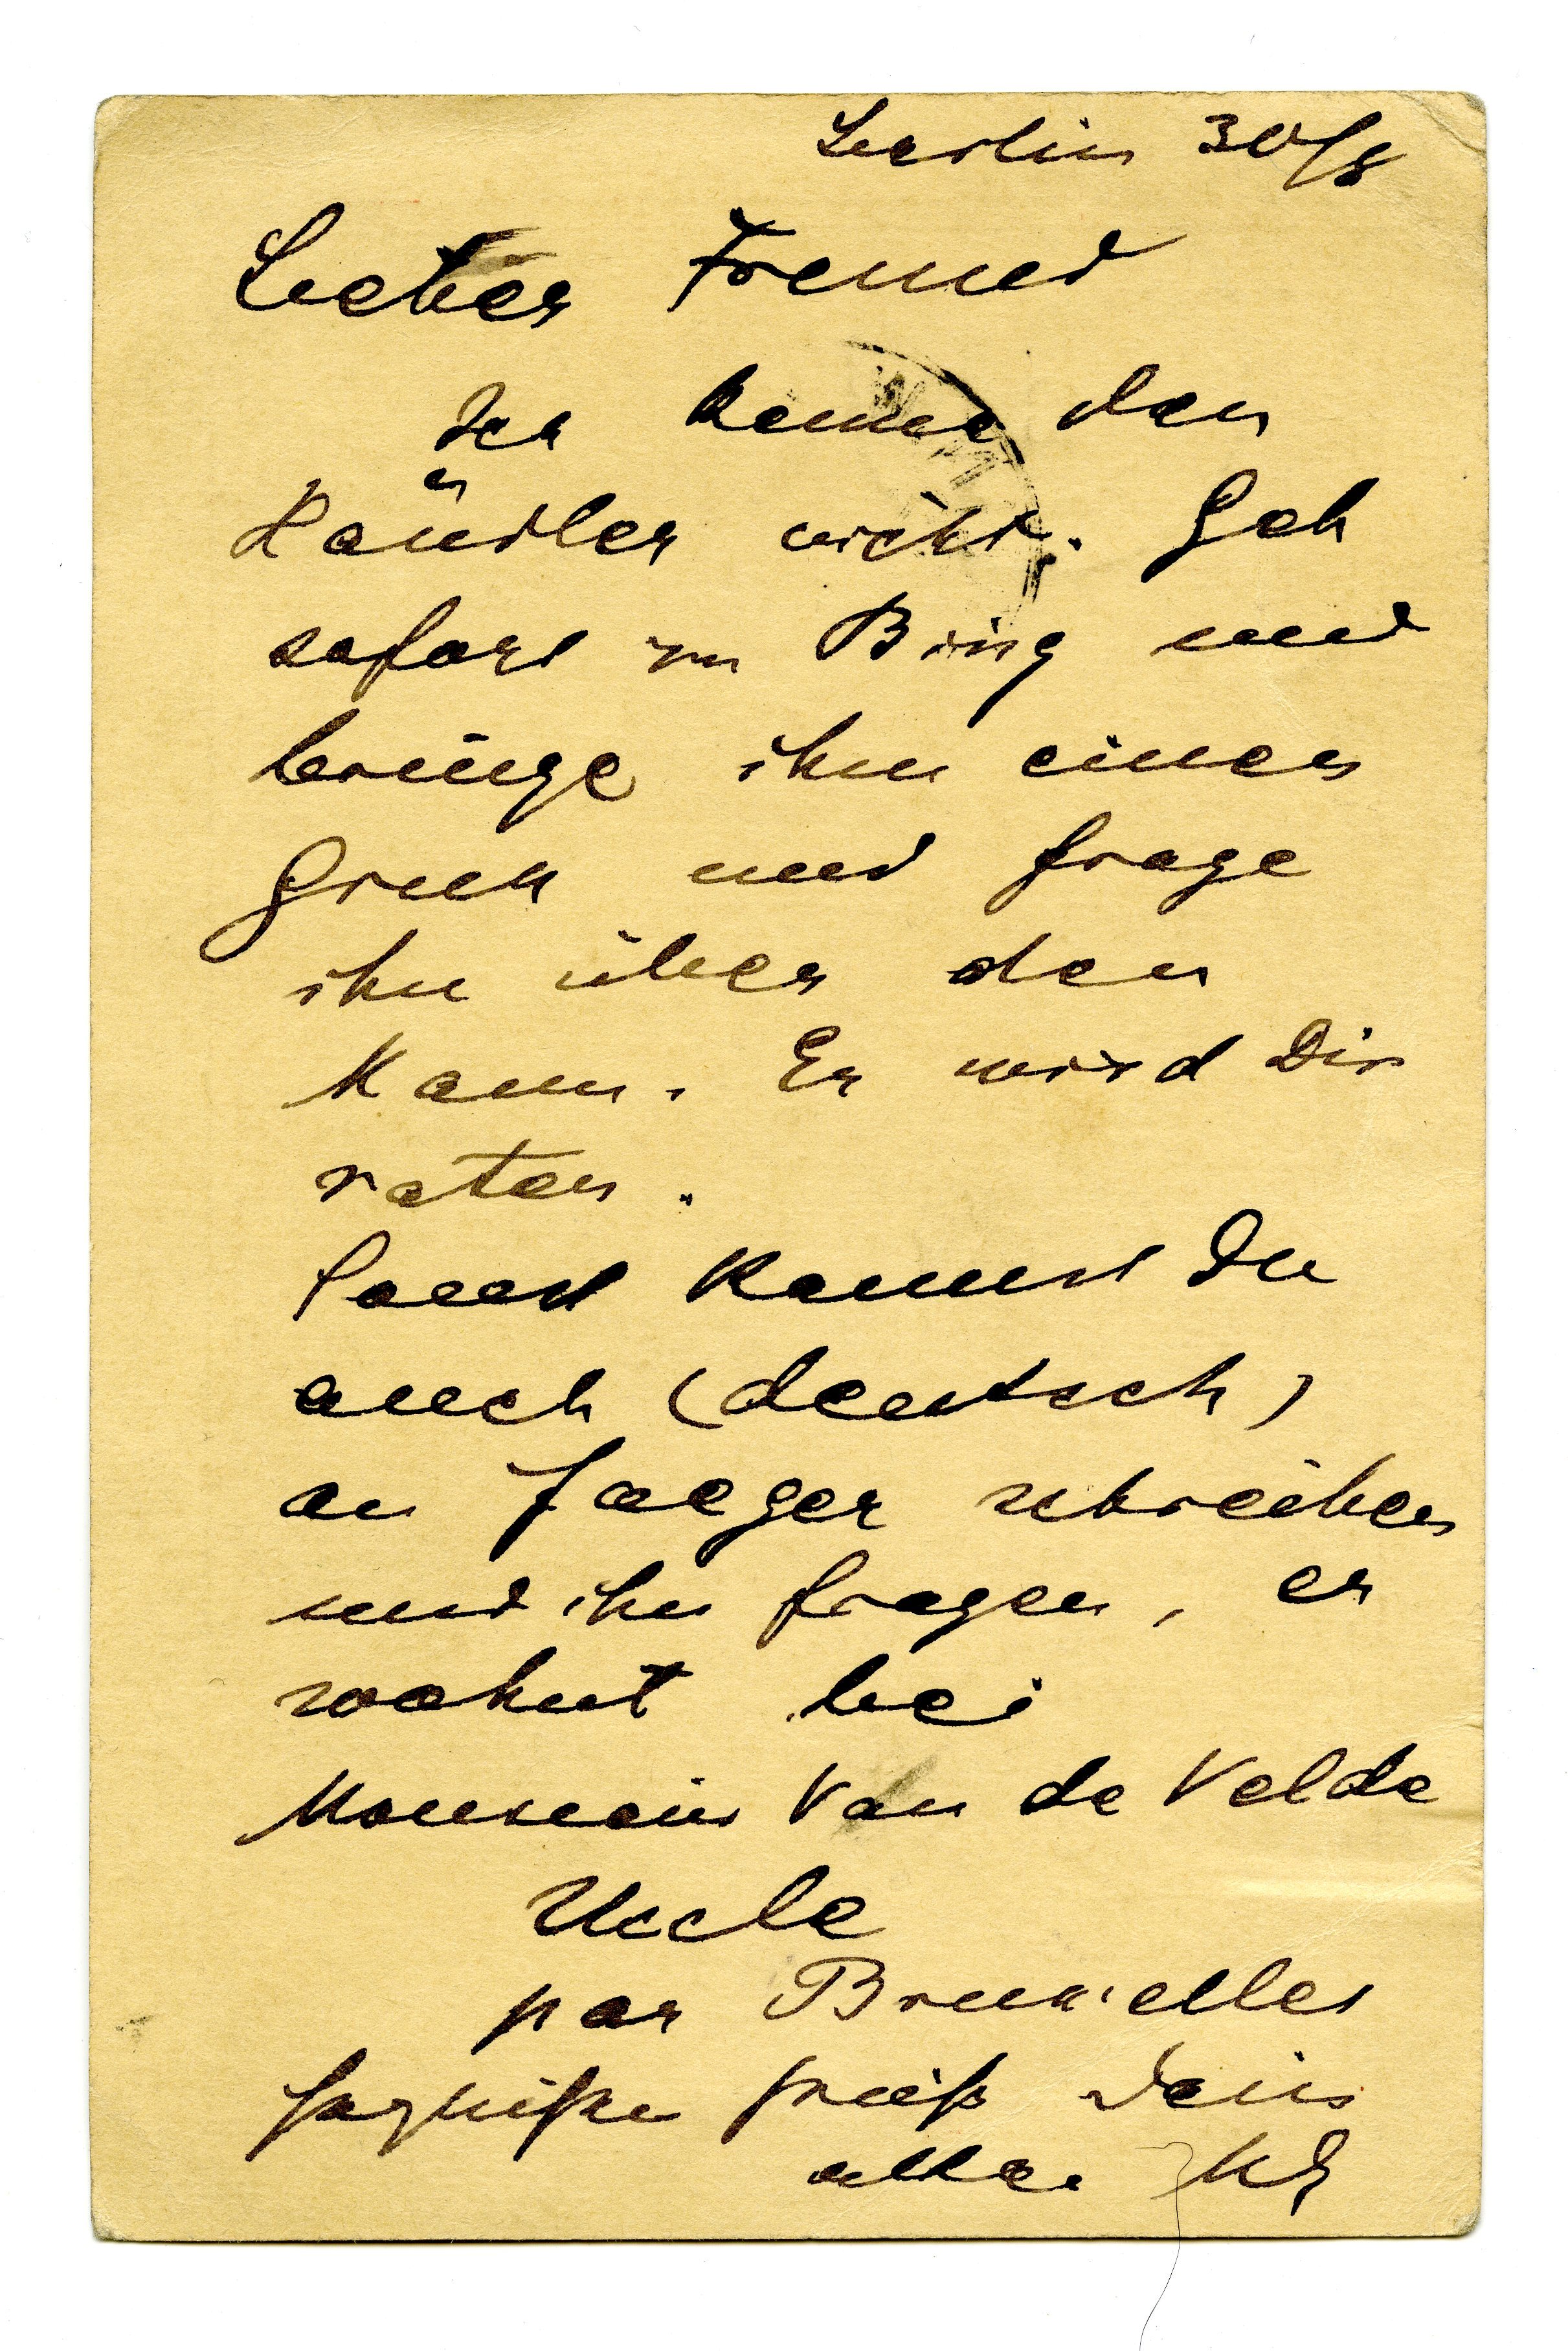 Berlin 30/8
Lieber Freund
Ich kenne den
Händler nicht. Geh
sofort zu Bing und
bringe ihm einen
Gruss und frage
ihn über den
Mann. Er wird Dir
raten.
Sonst kannst Du
auch (deutsch)
an Jaeger schreiben
und ihn fragen, er
wohnt bei
Monsieur Van de Velde
Uccle
par Bruxelles
grüß Dein
alter